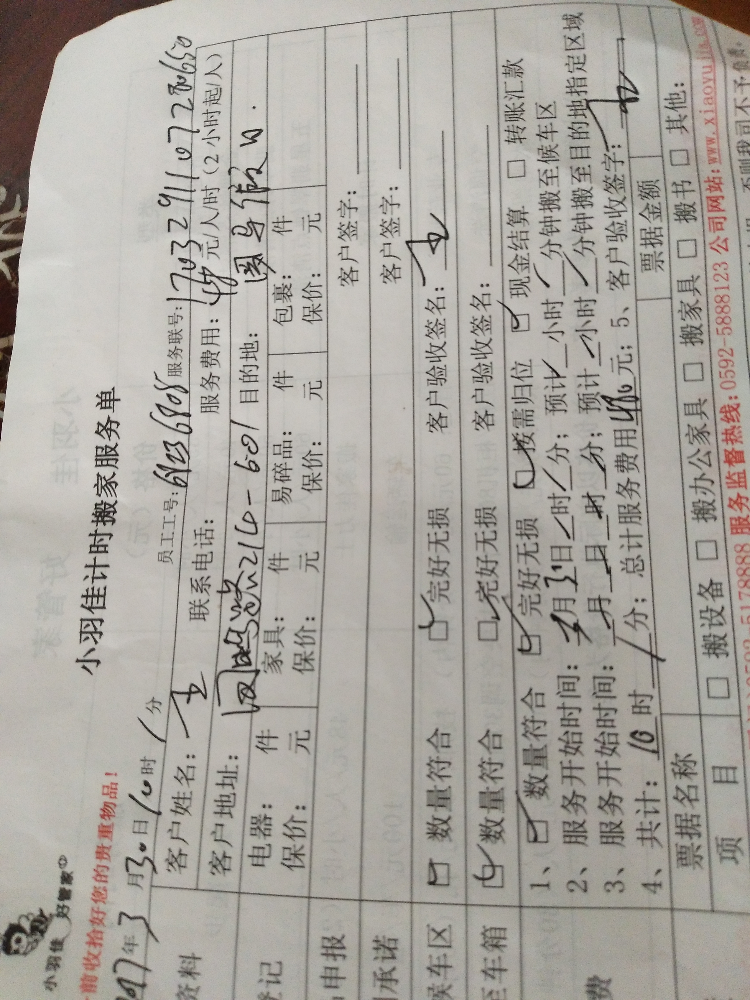 小羽佳
好管家
小羽佳计时搬家服务单
前收拾好您的贵重物品!
年3月30日10时/分
员工工号: 服务联号:
资料 客户姓名:王 联系电话: 服务费用:48元/人/时(2小时起/人)
客户地址: 214-601 目的地:
登记 电器: 件 家具: 件 易碎品: 件 包裹: 件
保价: 元 保价: 元 保价: 元 保价: 元
申报 客户签字:
承诺 客户签字:
候车区 数量符合 完好无损 客户验收签名:王
至车箱 数量符合 完好无损 客户验收签名:
1、 数量符合 完好无损 按需归位 现金结算 转账汇款
2、服务开始时间: 月 日 时 分;预计 小时 分钟搬至候车区
3、服务开始时间: 月 日 时 分;预计 小时 分钟搬至目的地指定区域
4、共计:10时/分;总计服务费用480元;5、客户验收签字:王
费 票据名称 票据金额
项目 搬设备 搬办公家具 搬家具 搬书 其他:
0592-5178888 服务监督热线:0592-5888123 公司网站:www.xiaoyujia.com
否则我司不予负责。